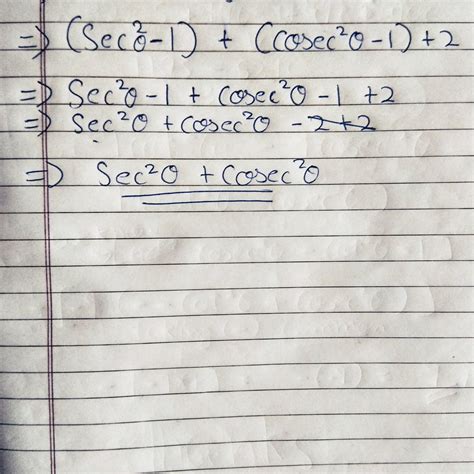 => (Sec²θ-1) + (Cosec²θ-1)+2
=> Sec²θ-1 + Cosec²θ-1 +2
=> Sec²θ + Cosec²θ -2+2
=> Sec²θ + Cosec²θ